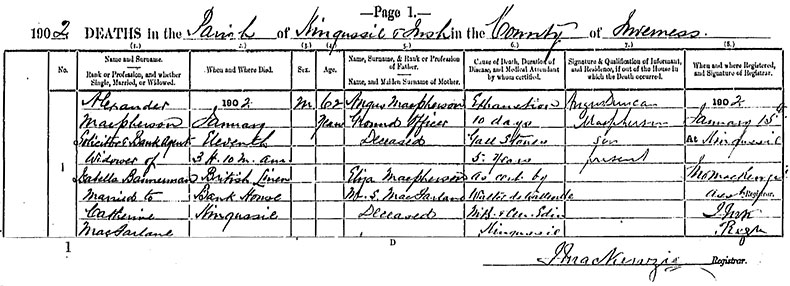 —Page 1.—
1902 DEATHS in the Parish of Kingussie & Insh in the County of Inverness.
(1.) (2.) (3.) (4.) (5.) (6.) (7.) (8.)
No.
Name and Surname.
Rank or Profession, and whether Single, Married, or Widowed.
When and Where Died.
Sex.
Age.
Name, Surname, & Rank or Profession of Father.
Name, and Maiden Surname of Mother.
Cause of Death, Duration of Disease, and Medical Attendant by whom certified.
Signature & Qualification of Informant, and Residence, if out of the House in which the Death occurred.
When and where Registered, and Signature of Registrar.
1
Alexander
Macpherson
Solicitor & Bank Agent
Widower of
Isabella Bannerman
Married to
Catherine
MacFarlane
1902
January
Eleventh
3 h. 10 m. a.m.
British Linen
Bank House
Kingussie
M
62
Years
Angus Macpherson
Ground Officer
Deceased
Eliza Macpherson
M. S. MacFarlane
Deceased
Exhaustion
10 days
Gall Stones
5 Years
As cert by
Walter de Watteville
Kingussie
Angus Duncan
Macpherson
son
present
1902
January 15
At Kingussie
Registrar.
1 D
J Mackenzie Registrar.